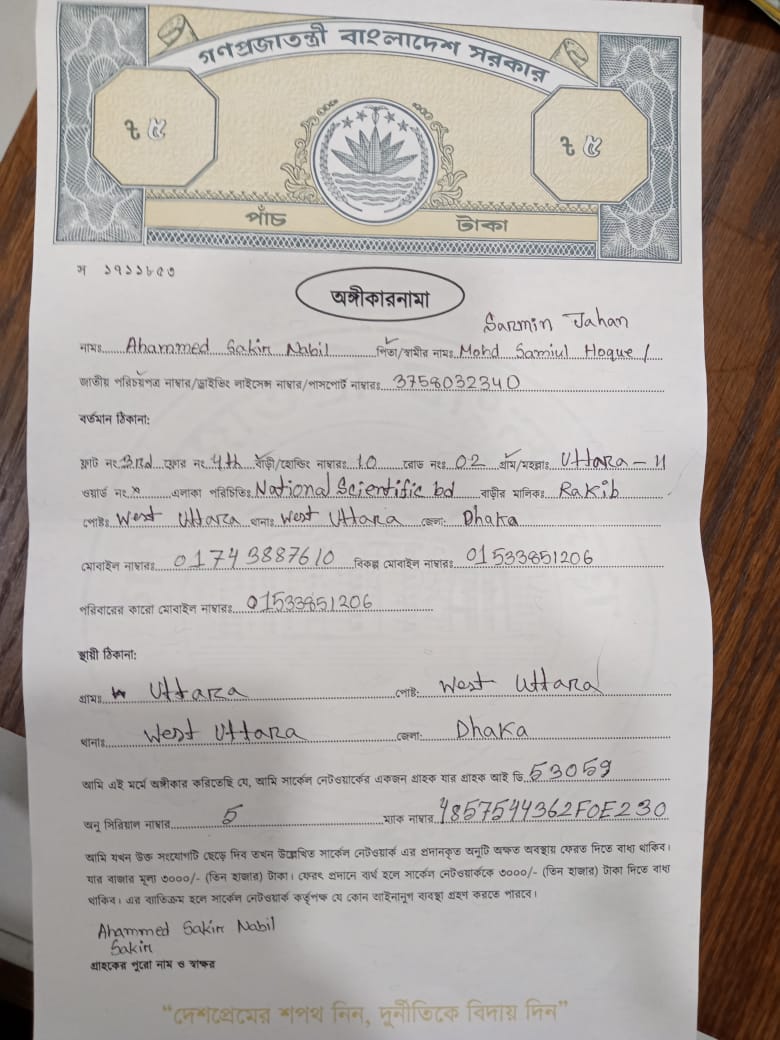 গণপ্রজাতন্ত্রী বাংলাদেশ সরকার
৳ ৫
৳ ৫
পাঁচ টাকা
গ ১৭১১৮৫৩
অঙ্গীকারনামা
Sarmin Jahan
নামঃ Ahammed Sakin Nabil পিতা/স্বামীর নামঃ Mohd Samiul Hoque /
জাতীয় পরিচয়পত্র নাম্বার/ড্রাইভিং লাইসেন্স নাম্বার/পাসপোর্ট নাম্বারঃ 3758032340
বর্তমান ঠিকানা:
ফ্লাট নং 3rd ফ্লোর নং 4th বাড়ী/হোল্ডিং নাম্বারঃ 10 রোড নংঃ 02 গ্রাম/মহল্লাঃ Uttara - 11
ওয়ার্ড নং x এলাকা পরিচিতিঃ National Scientific bd বাড়ীর মালিকঃ Rakib
পোষ্টঃ West Uttara থানাঃ West Uttara জেলা: Dhaka
মোবাইল নাম্বারঃ 01743887610 বিকল্প মোবাইল নাম্বারঃ 01533851206
পরিবারের কারো মোবাইল নাম্বারঃ 01533851206
স্থায়ী ঠিকানা:
গ্রামঃ Uttara পোষ্ট: West Uttara
থানাঃ West Uttara জেলা: Dhaka
আমি এই মর্মে অঙ্গীকার করিতেছি যে, আমি সার্কেল নেটওয়ার্কের একজন গ্রাহক যার গ্রাহক আই ডি 53059
অনু সিরিয়াল নাম্বার 5 ম্যাক নাম্বার 4857544362F0E230
আমি যখন উক্ত সংযোগটি ছেড়ে দিব তখন উল্লেখিত সার্কেল নেটওয়ার্ক এর প্রদানকৃত অনুটি অক্ষত অবস্থায় ফেরত দিতে বাধ্য থাকিব।
যার বাজার মূল্য ৩০০০/- (তিন হাজার) টাকা। ফেরৎ প্রদানে ব্যর্থ হলে সার্কেল নেটওয়ার্ককে ৩০০০/- (তিন হাজার) টাকা দিতে বাধ্য
থাকিব। এর ব্যতিক্রম হলে সার্কেল নেটওয়ার্ক কর্তৃপক্ষ যে কোন আইনানুগ ব্যবস্থা গ্রহণ করতে পারবে।
Ahammed Sakin Nabil
Sakin
গ্রাহকের পুরো নাম ও স্বাক্ষর
“দেশপ্রেমের শপথ নিন, দুর্নীতিকে বিদায় দিন”